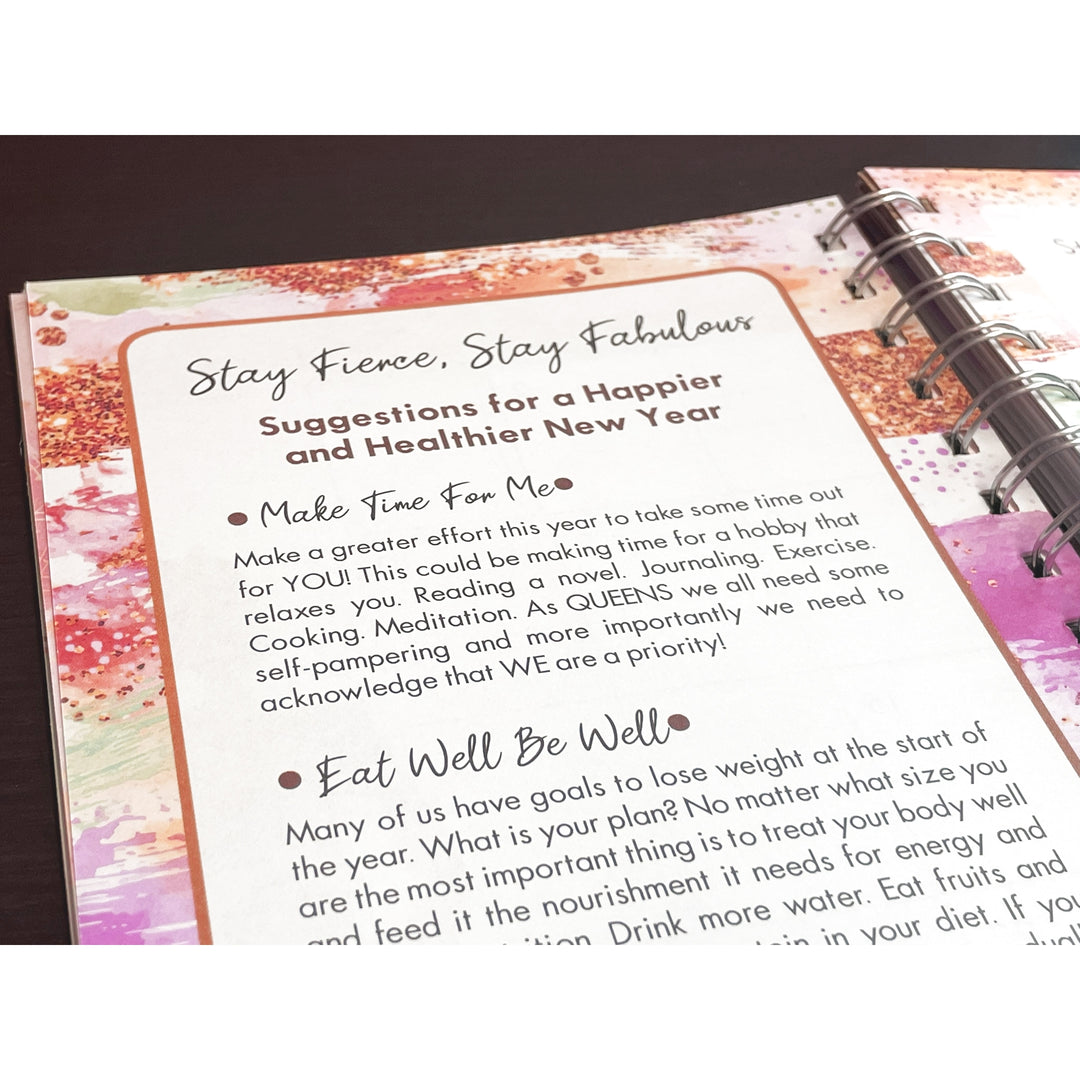 Stay Fierce, Stay Fabulous
Suggestions for a Happier
and Healthier New Year
• Make Time For Me•
Make a greater effort this year to take some time out
for YOU! This could be making time for a hobby that
relaxes you. Reading a novel. Journaling. Exercise.
Cooking. Meditation. As QUEENS we all need some
self-pampering and more importantly we need to
acknowledge that WE are a priority!
• Eat Well Be Well•
Many of us have goals to lose weight at the start of
the year. What is your plan? No matter what size you
are the most important thing is to treat your body well
and feed it the nourishment it needs for energy and
Drink more water. Eat fruits and
in your diet. If you